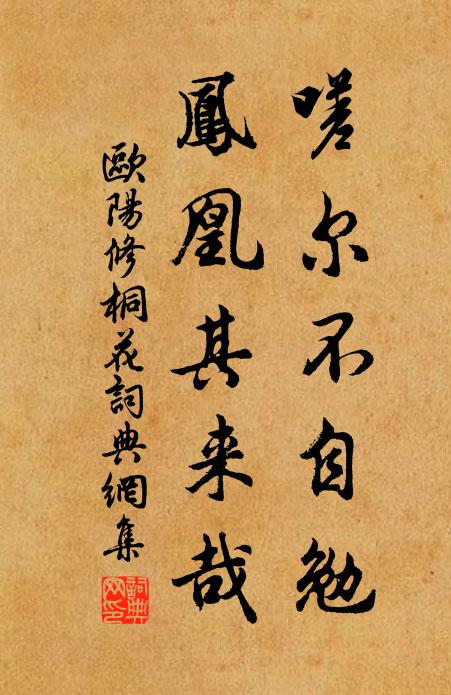 嗟尔不自勉
鳳凰其来哉
歐陽修桐花詞典網集
詞典网印